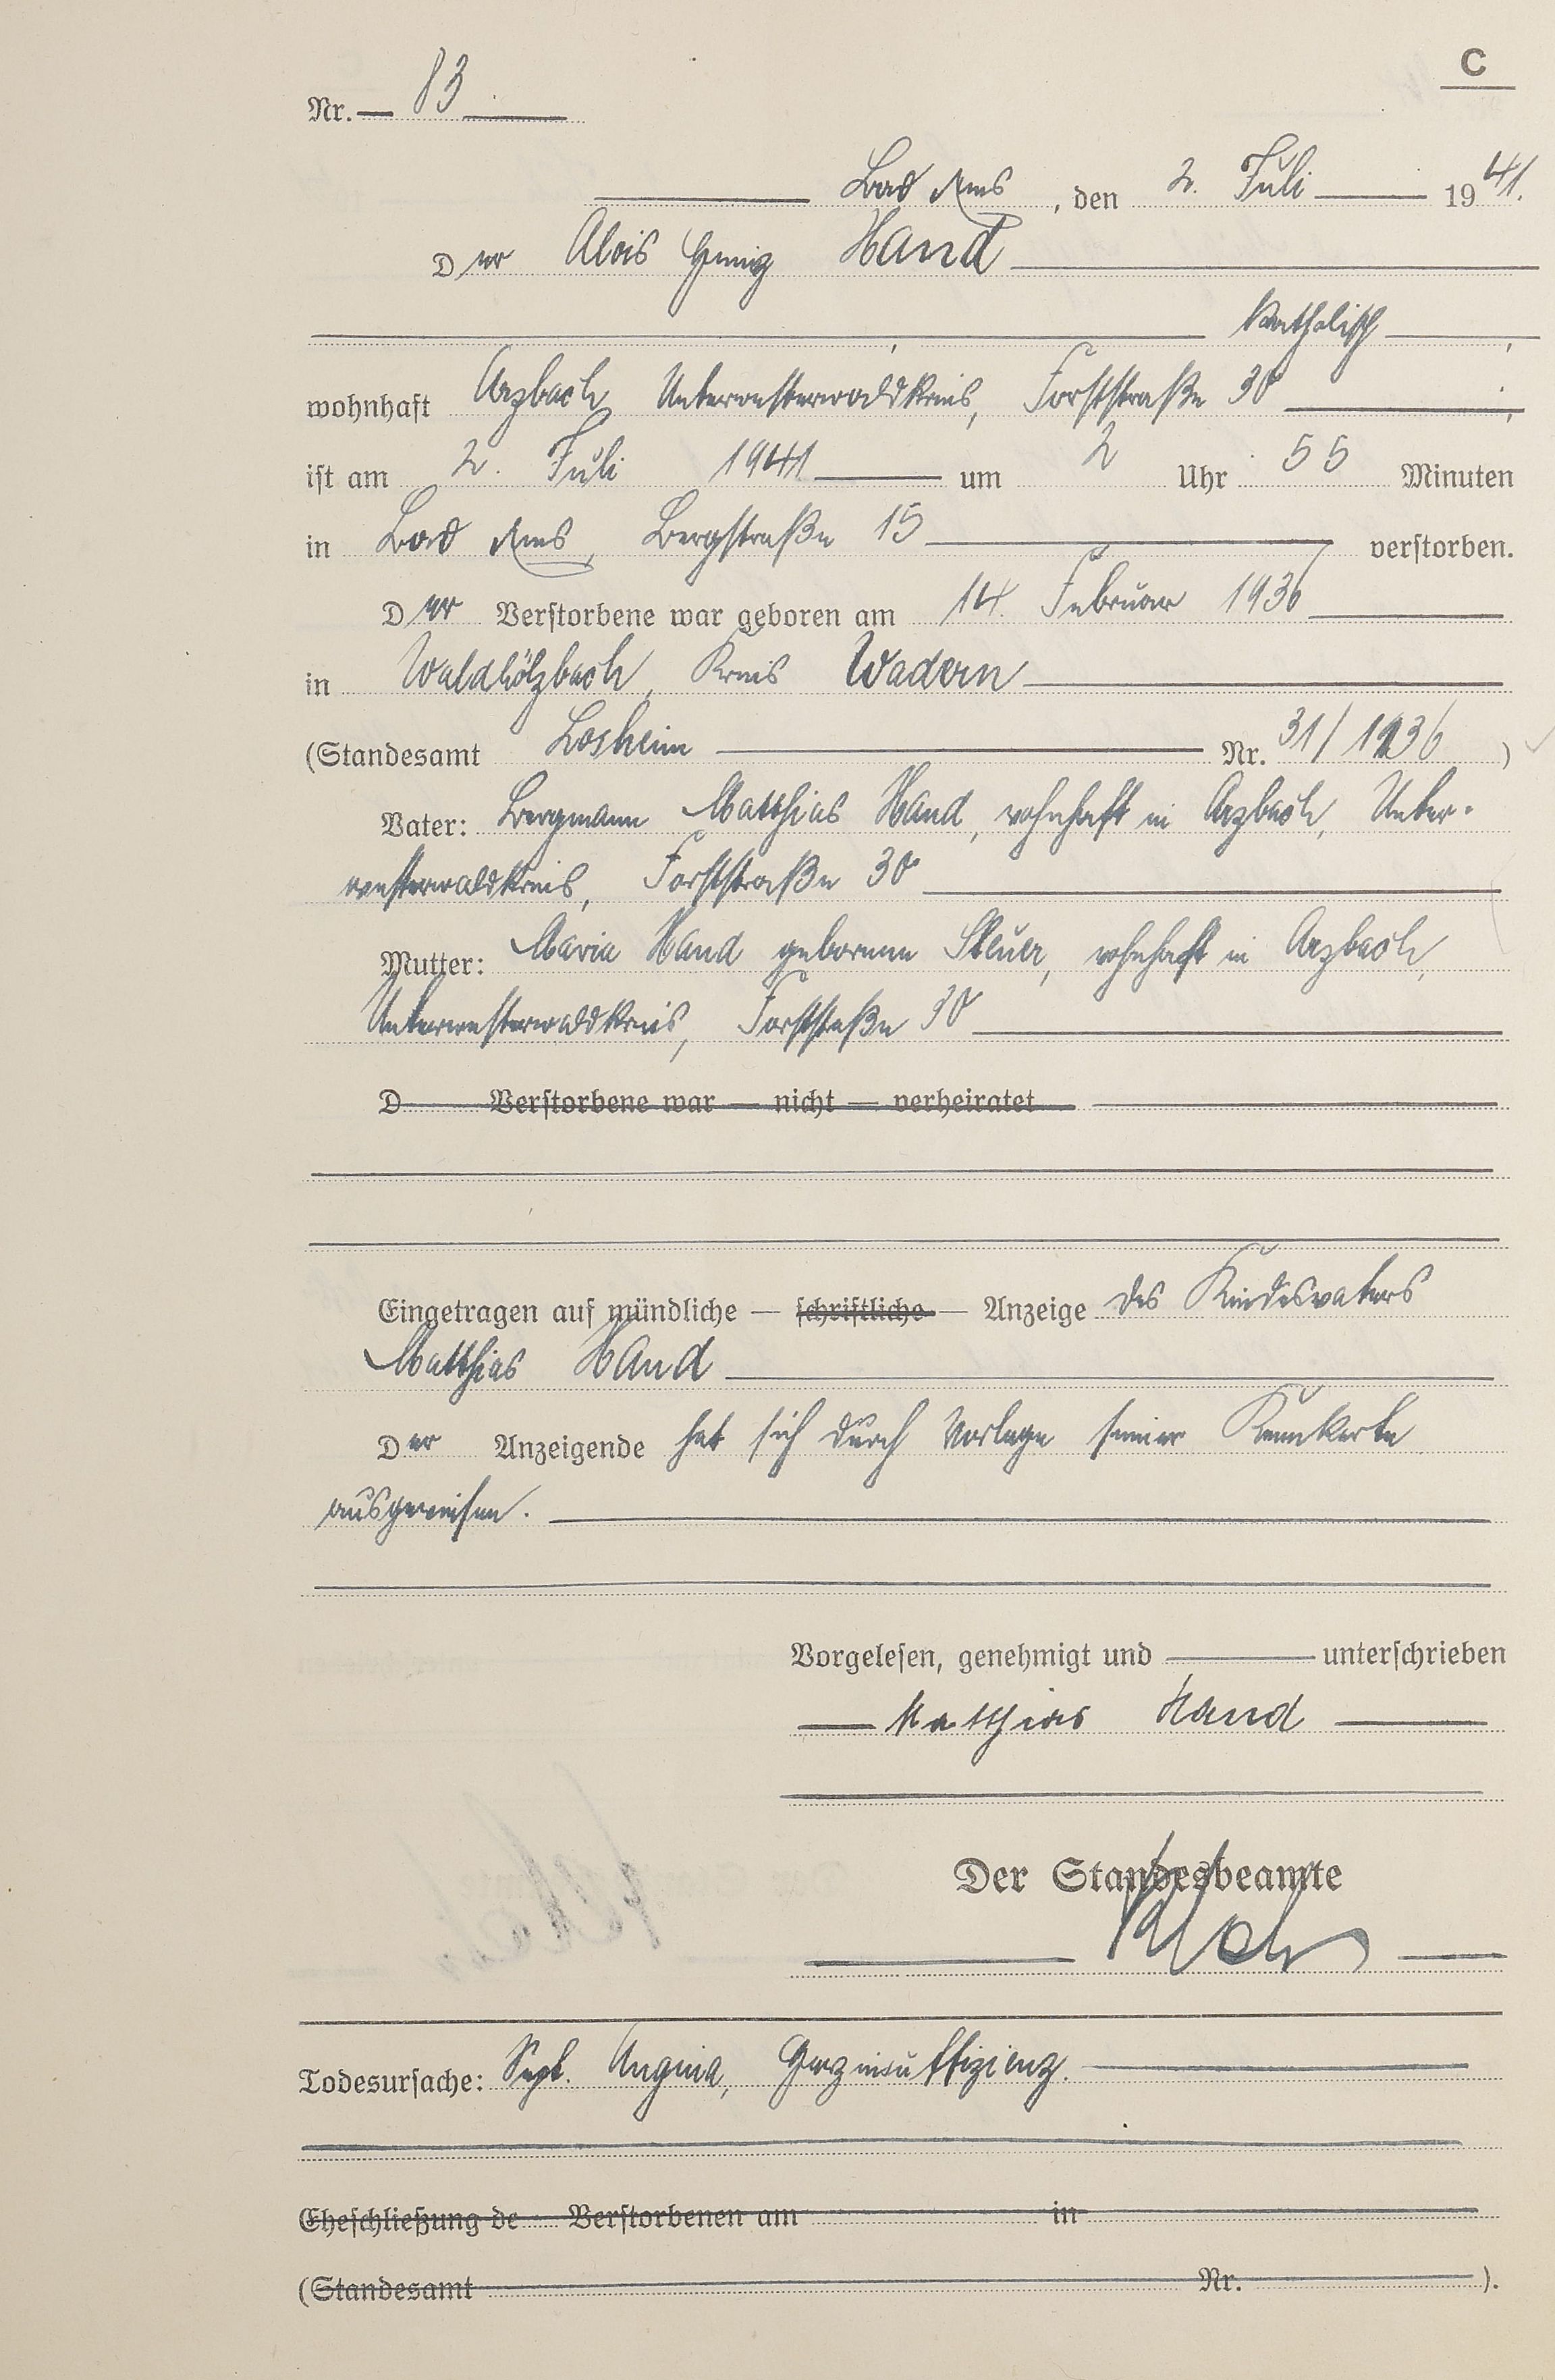 C
Nr. 83
Bad Ems, den 2. Juli 1941.
Der Alois Heinz Hand
katholisch,
wohnhaft Arzbach, Unterwesterwaldkreis, Forststraße 30,
ist am 2. Juli 1941 um 2 Uhr 55 Minuten
in Bad Ems, Bergstraße 15 verstorben.
Der Verstorbene war geboren am 14. Februar 1936
in Waldhölzbach, Kreis Wadern
(Standesamt Losheim Nr. 31/1936)
Vater: Bergmann Matthias Hand, wohnhaft in Arzbach, Unter-
westerwaldkreis, Forststraße 30
Mutter: Maria Hand geborene Steuer, wohnhaft in Arzbach,
Unterwesterwaldkreis, Forststraße 30
D Verstorbene war — nicht — verheiratet
Eingetragen auf mündliche — schriftliche — Anzeige des Kindesvaters
Matthias Hand
Der Anzeigende hat sich durch Vorlage seiner Kennkarte
ausgewiesen.
Vorgelesen, genehmigt und unterschrieben
Matthias Hand
Der Standesbeamte
Todesursache: Sept. Angina, Herzinsuffizienz.
Eheschließung de Verstorbenen am in
(Standesamt Nr. ).